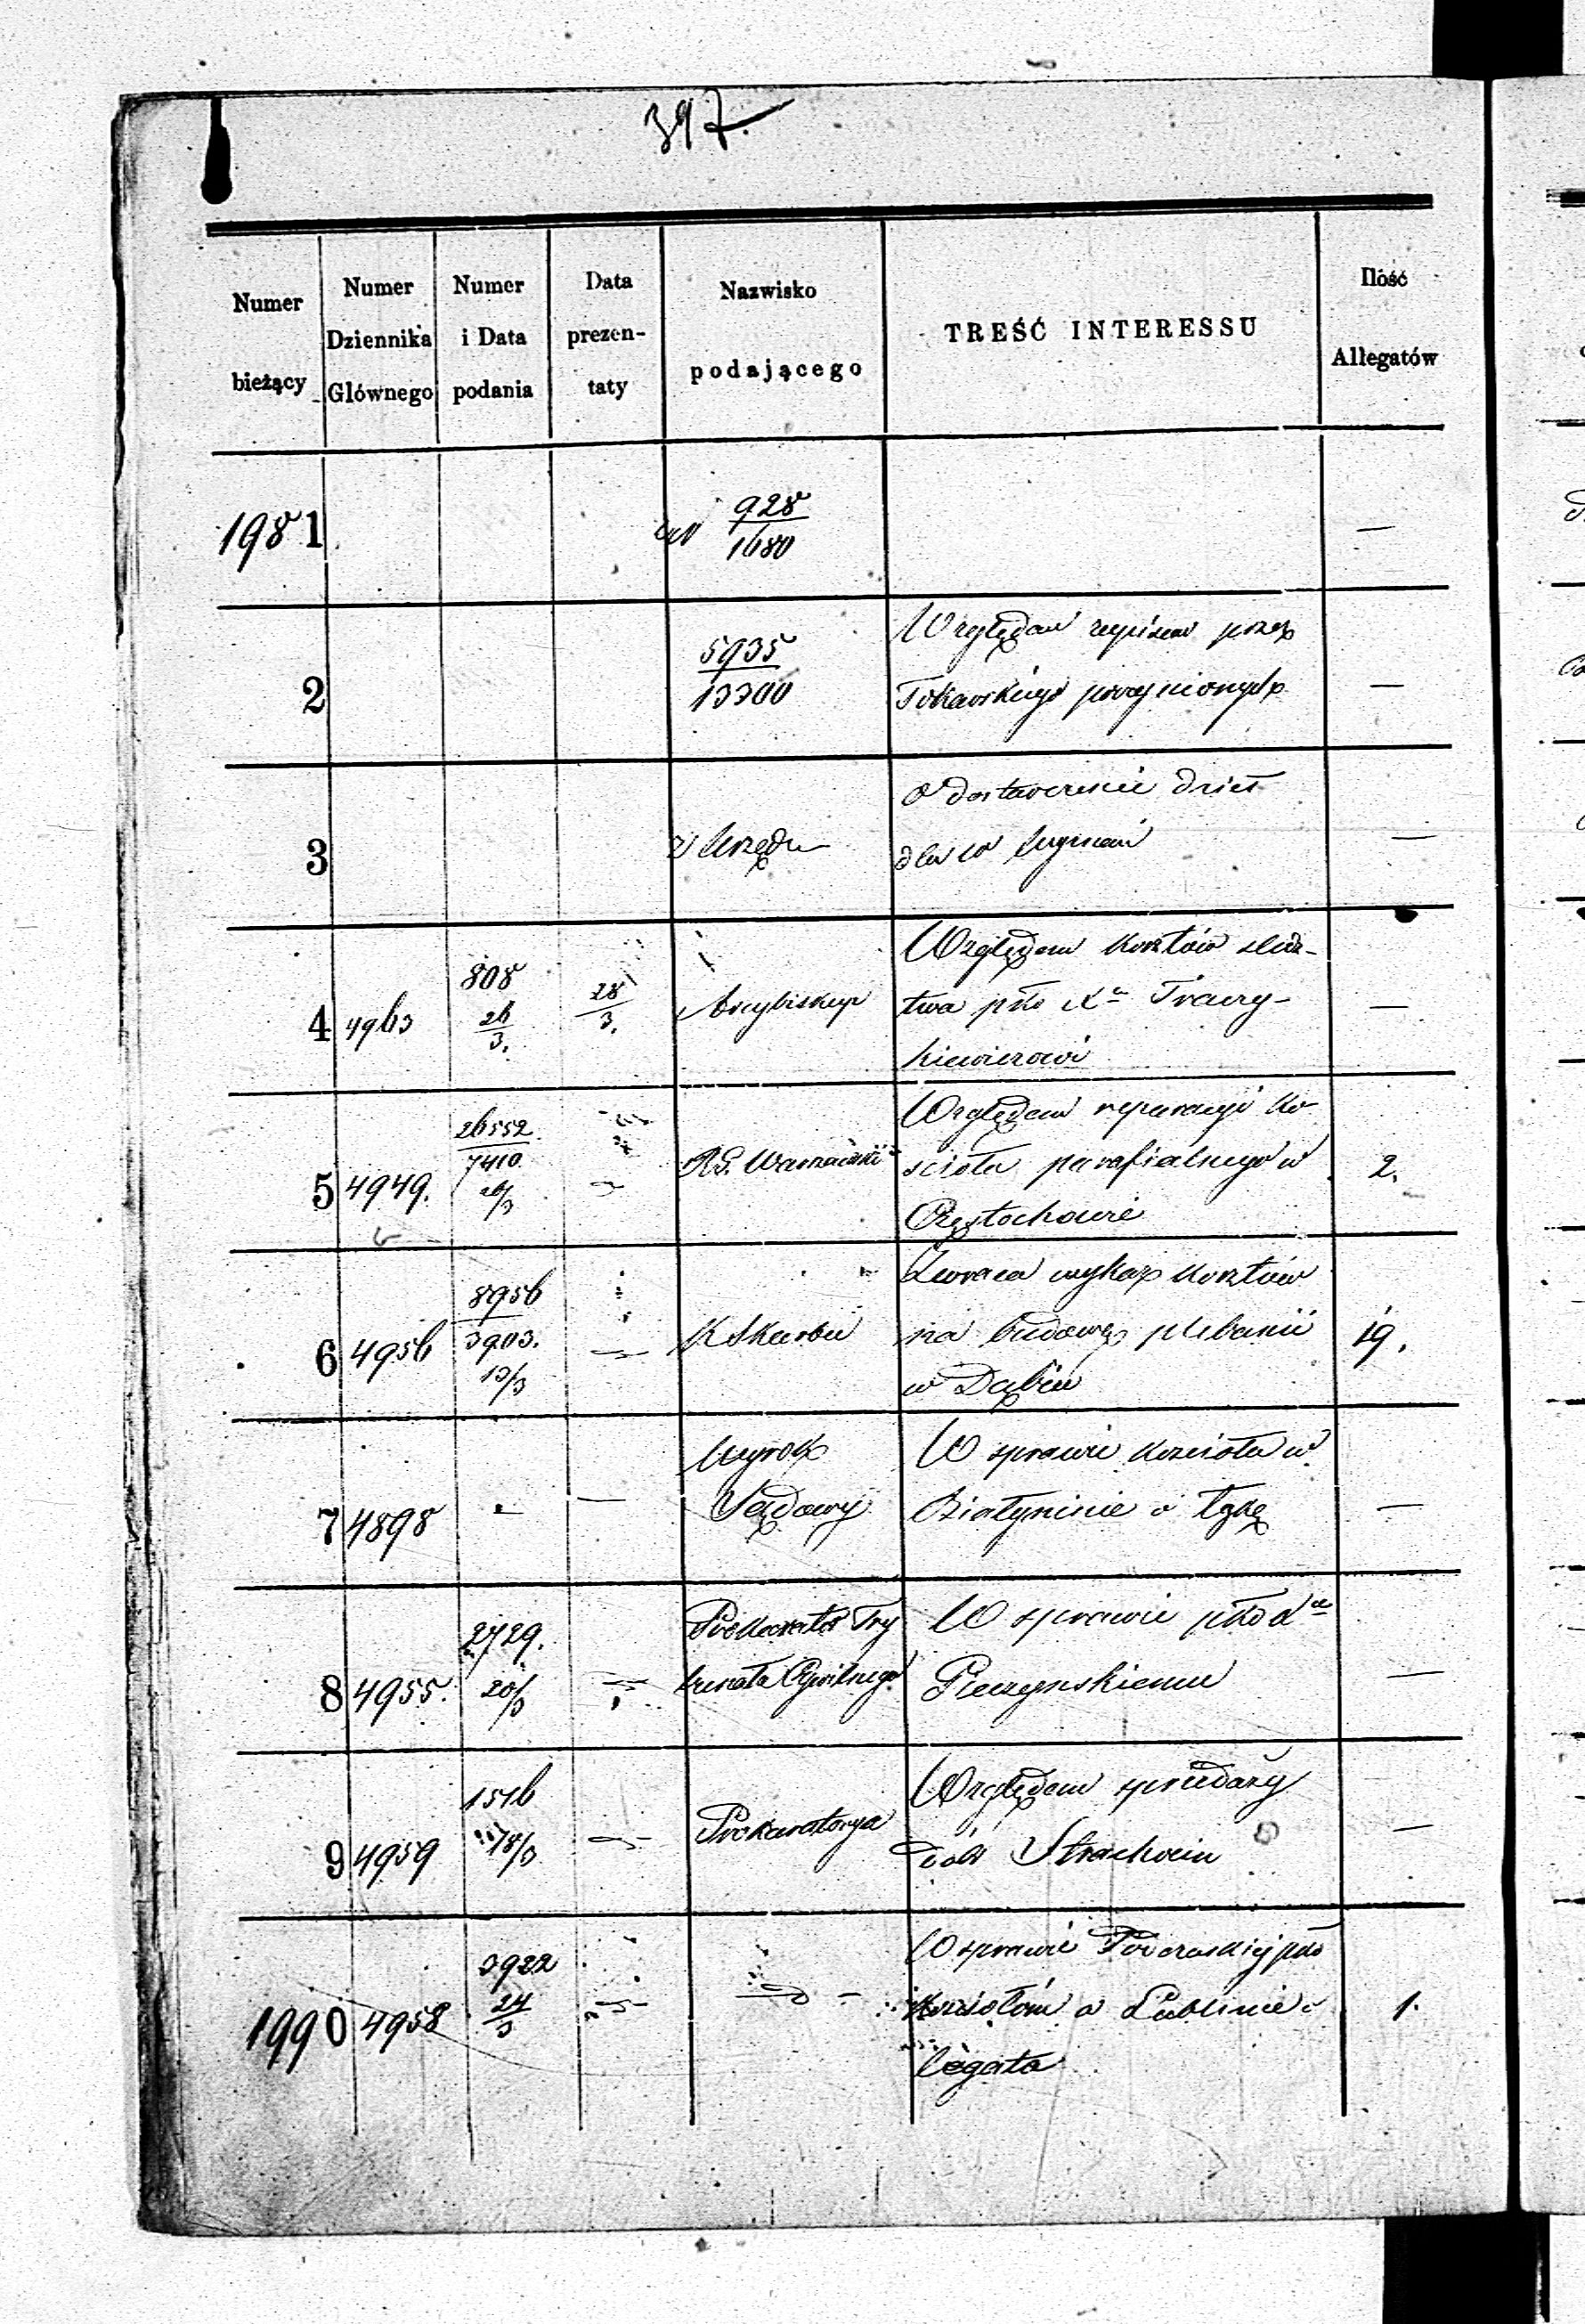 397.
Numer bieżący
Numer Dziennika Głównego
Numer i Data podania
Data prezen-taty
Nazwisko podającego
TREŚĆ INTERESSU
Ilość Allegatów
1981
928
1680
—
2
5935
13300
Względem przez
Tokarskiego poczynionych
—
3
z Urzędu
o dostarczenie dzieł
dla
—
4 4963
808
26
3.
28
3.
Arcybiskup
Względem kosztów śledz-
twa pko Xu
kiewiczowi
—
5 4949.
26552
7410
26/3
R.G. Warszawski
Względem reparacyi ko-
scioła parafialnego w
Częstochowie
2.
6 4956
8956
3903.
13/3
K Skarbu
Zwraca wykaz kosztów
na budowę plebanii
w Dąbiu
19.
7 4898
-
—
Wyrok
Sądowy
W sprawie kościoła w
Białyninie o łąkę
—
8 4955.
2729.
20/3
Prokurator Try
bunału Cywilnego
W sprawie pko Xu
Pieczynskiemu
—
9 4959
1516
18/3
Prokuratorya
Względem sprzedaży
dóbr Strachocin
—
1990 4958
3922
24
3
W sprawie pko
kościołom w Lublinie o
legata
1.